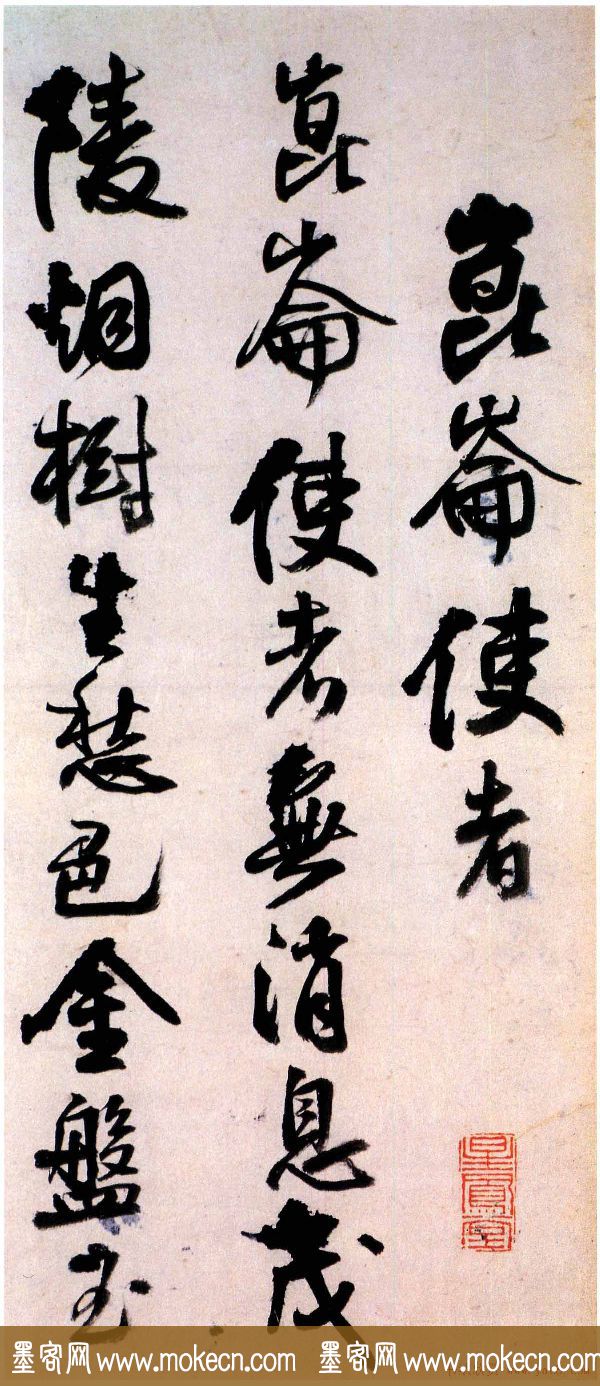 崑崙使者
崑崙使者無消息茂
陵烟樹生愁色金盤玉
墨客网 www.mokecn.com 墨客网 www.mokecn.com